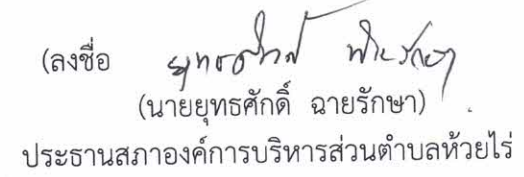 (ลงชื่อ ยุทธศักดิ์ ฉายรักษา
(นายยุทธศักดิ์ ฉายรักษา)
ประธานสภาองค์การบริหารส่วนตำบลห้วยไร่